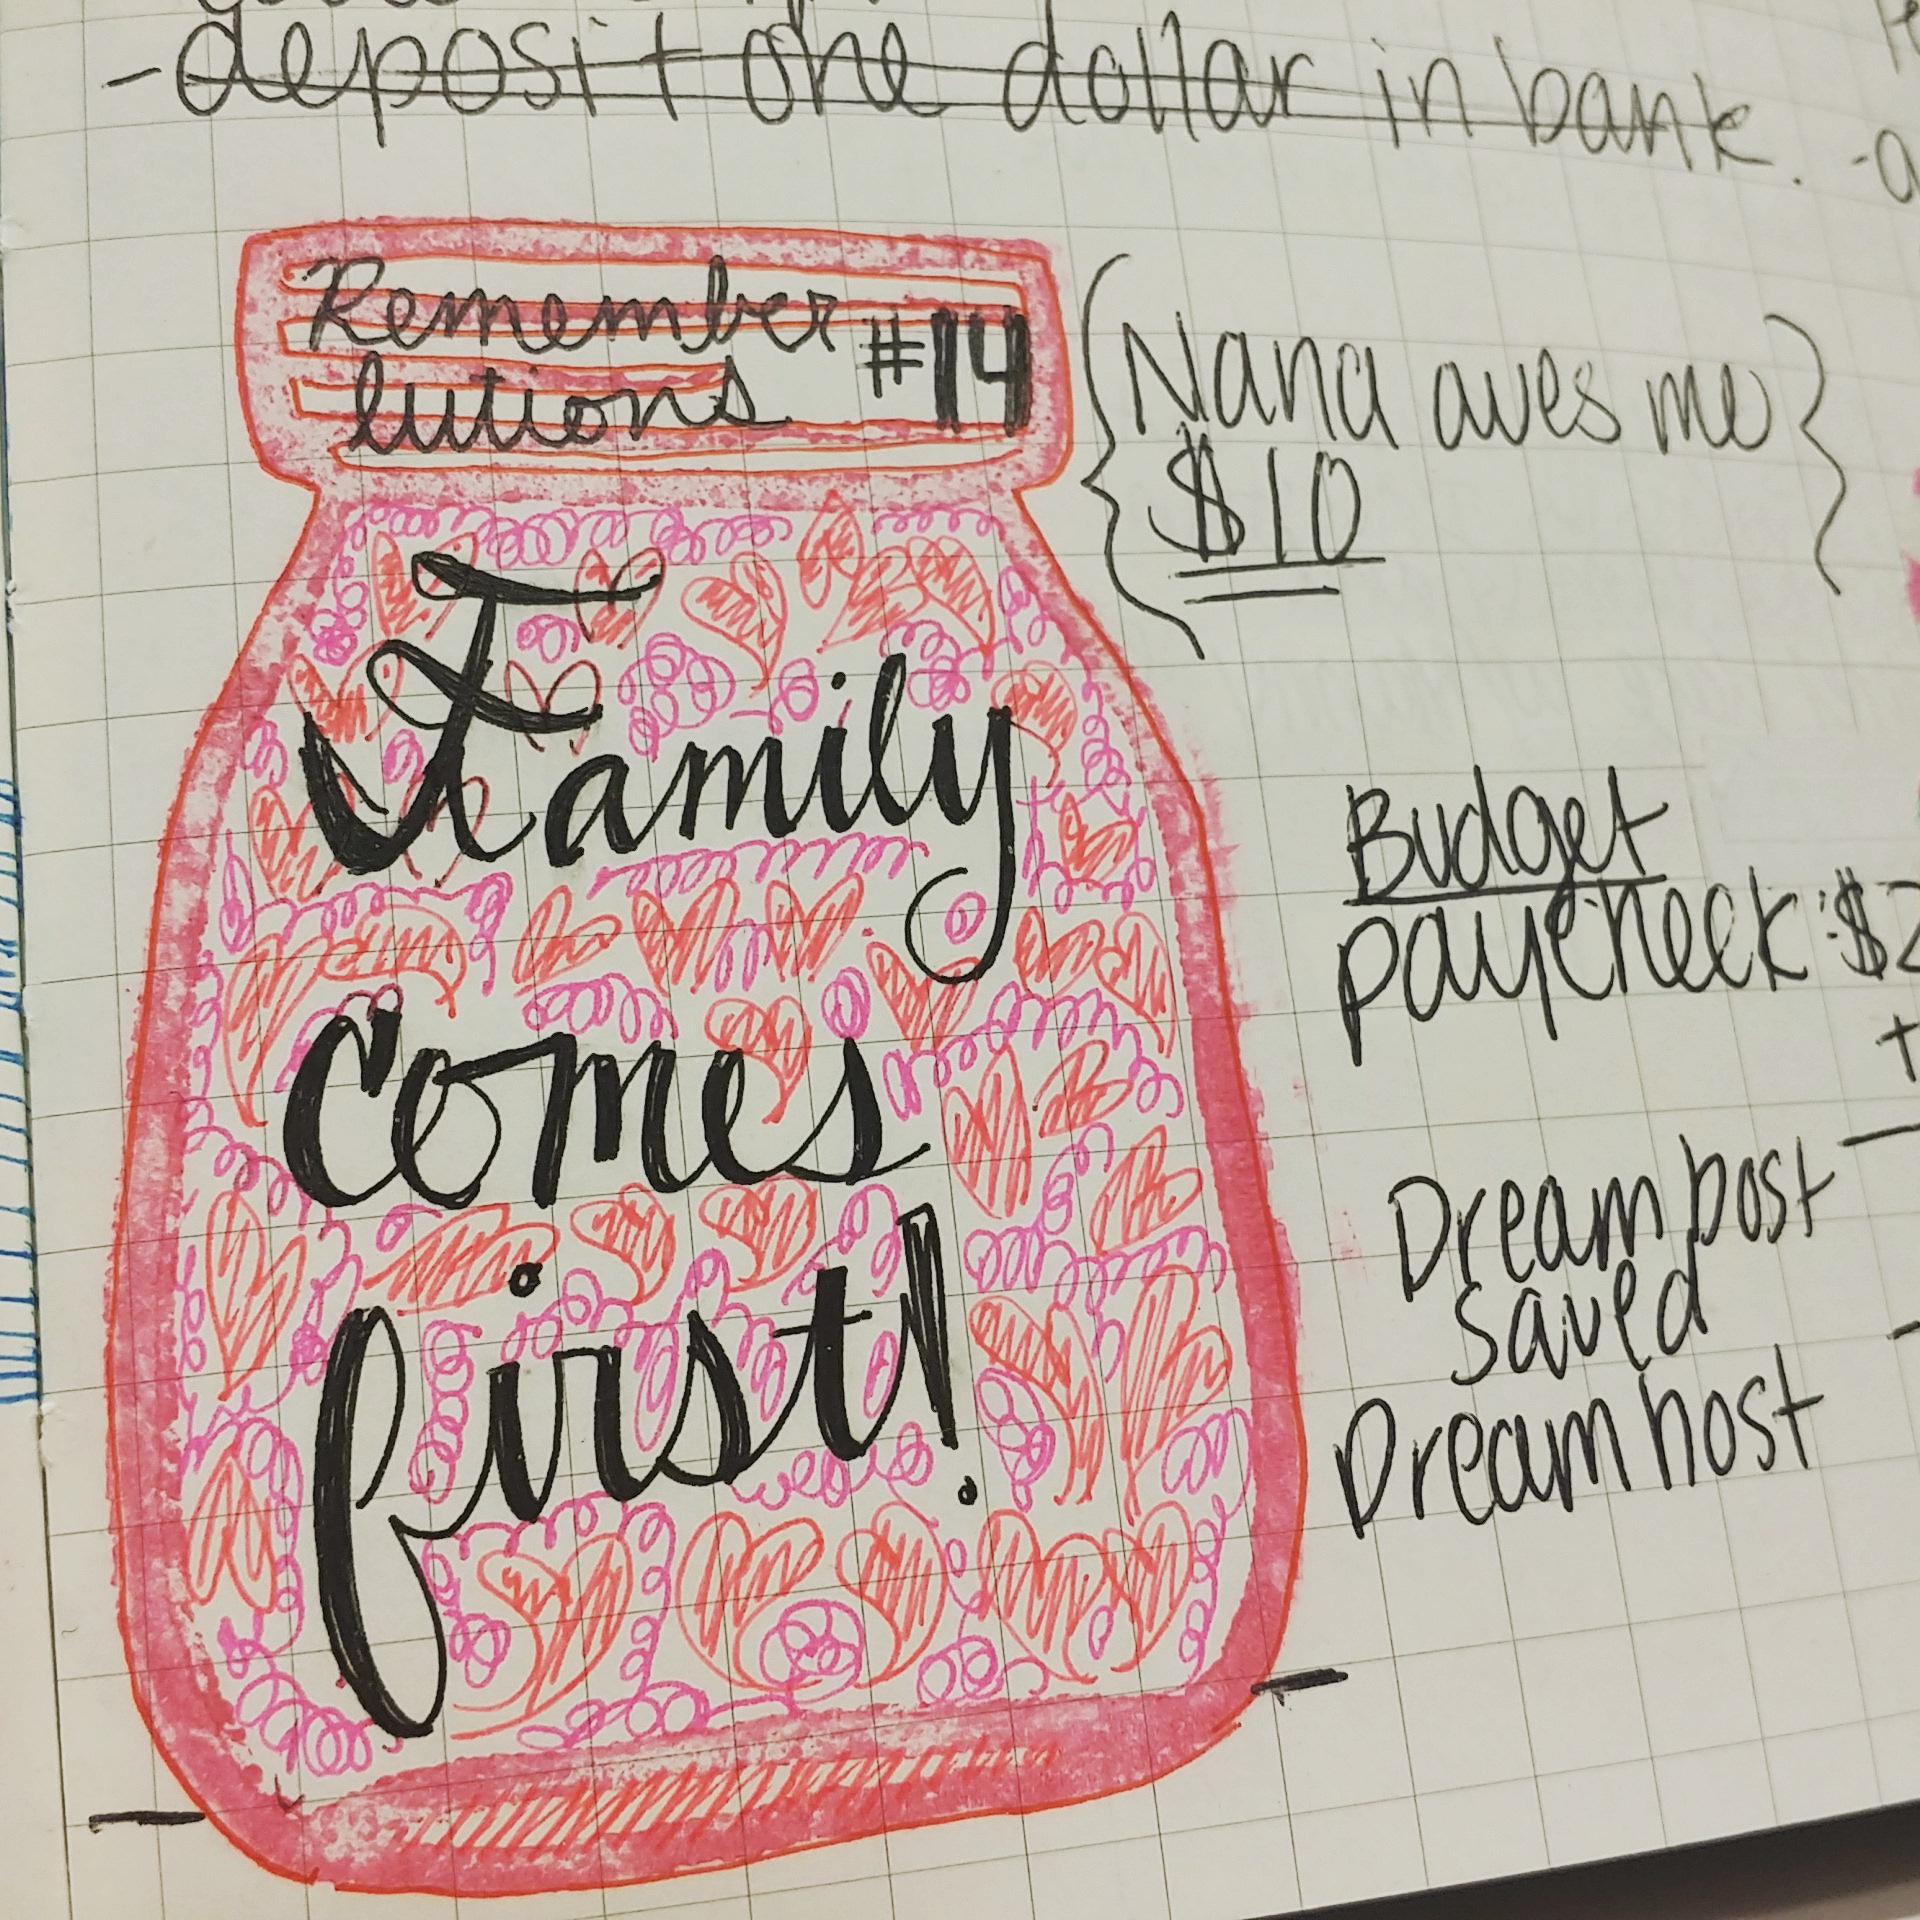 - deposit one dollar in bank.
Remember
lutions #14
Nana owes me
$10
Family
comes
first!
Budget
paycheck: $2
+
Dream post
saved
Dream host